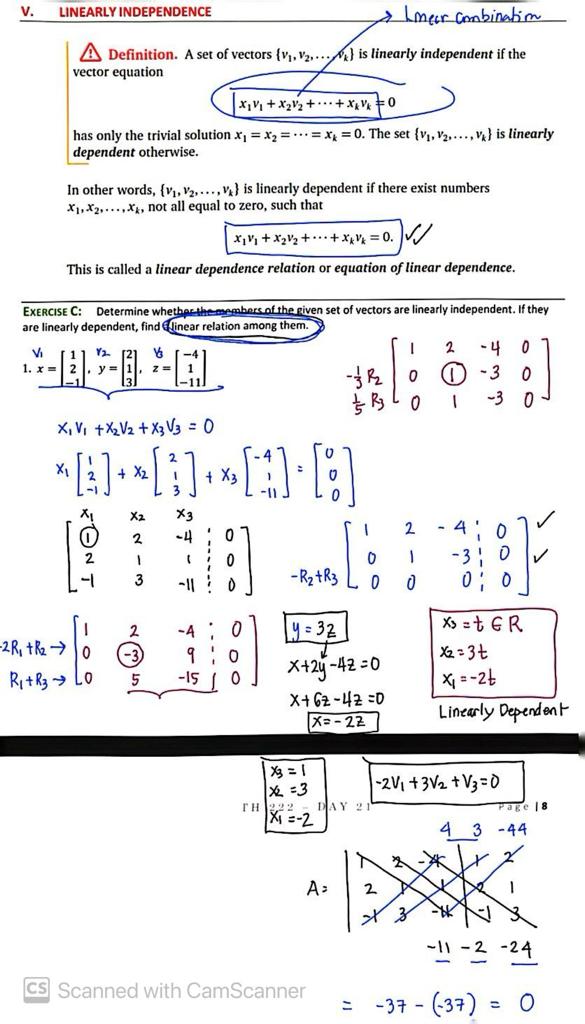 V. LINEARLY INDEPENDENCE
Linear combination
⚠ Definition. A set of vectors {v₁, v₂, ..., vₖ} is linearly independent if the
vector equation
x₁v₁ + x₂v₂ + ··· + xₖvₖ = 0
has only the trivial solution x₁ = x₂ = ··· = xₖ = 0. The set {v₁, v₂, ..., vₖ} is linearly
dependent otherwise.
In other words, {v₁, v₂, ..., vₖ} is linearly dependent if there exist numbers
x₁, x₂, ..., xₖ, not all equal to zero, such that
x₁v₁ + x₂v₂ + ··· + xₖvₖ = 0. ✓✓
This is called a linear dependence relation or equation of linear dependence.
EXERCISE C: Determine whether the members of the given set of vectors are linearly independent. If they
are linearly dependent, find a linear relation among them.
V₁ V₂ V₃
1. x = [1 2 −1], y = [2 1 3], z = [−4 1 −11]
1 2 -4 0
-1/3 R₂ 0 1 -3 0
1/5 R₃ 0 1 -3 0
X₁V₁ + X₂V₂ + X₃V₃ = 0
X₁ [1 2 -1] + X₂ [2 1 3] + X₃ [-4 1 -11] = [0 0 0]
X₁ X₂ X₃
1 2 -4 0
2 1 1 0
-1 3 -11 0
1 2 -4 0 ✓
0 1 -3 0 ✓
-R₂+R₃ 0 0 0 0
1 2 -4 0
-2R₁+R₂→ 0 -3 9 0
R₁+R₃→ 0 5 -15 0
y = 3z
x+2y-4z=0
x+6z-4z=0
x=-2z
X₃ = t ∈ R
X₂ = 3t
X₁ = -2t
Linearly Dependent
X₃ = 1
X₂ = 3
X₁ = -2
-2V₁ + 3V₂ + V₃ = 0
TH 222 – DAY 21
Page | 8
4 3 -44
A=
1 2 -4 1 2
2 1 1 2 1
-1 3 -11 -1 3
-11 -2 -24
= -37 - (-37) = 0
CS Scanned with CamScanner